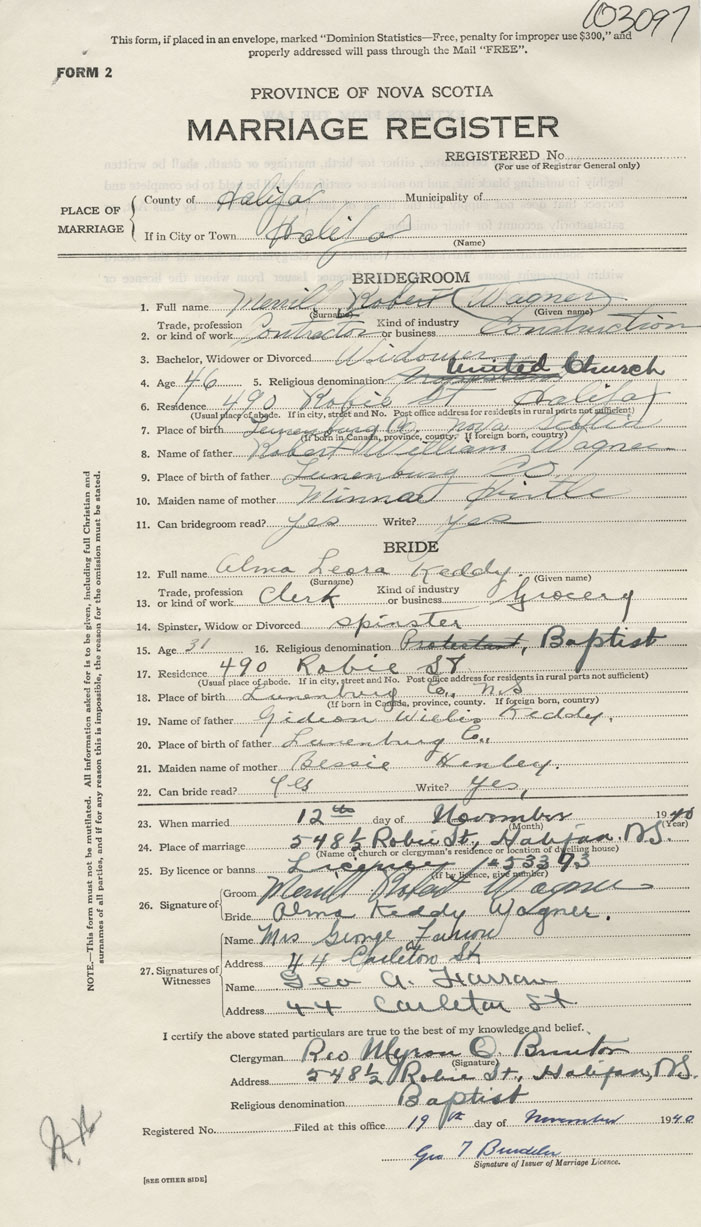 103097
This form, if placed in an envelope, marked "Dominion Statistics—Free, penalty for improper use $300," and
properly addressed will pass through the Mail "FREE".
FORM 2
PROVINCE OF NOVA SCOTIA
MARRIAGE REGISTER
REGISTERED No.
(For use of Registrar General only)
PLACE OF MARRIAGE
County of Halifax Municipality of
If in City or Town Halifax
(Name)
BRIDEGROOM
1. Full name Merrill Robert Wagner
(Surname) (Given name)
2. Trade, profession or kind of work Contractor Kind of industry or business Construction
3. Bachelor, Widower or Divorced Widower
4. Age 46 5. Religious denomination United Church
6. Residence 490 Robie St Halifax
(Usual place of abode. If in city, street and No. Post office address for residents in rural parts not sufficient)
7. Place of birth Lunenburg Co. Nova Scotia
(If born in Canada, province, county. If foreign born, country)
8. Name of father Robert William Wagner
9. Place of birth of father Lunenburg Co.
10. Maiden name of mother Minna
11. Can bridegroom read? yes Write? yes
BRIDE
12. Full name Alma Leora Keddy
(Surname) (Given name)
13. Trade, profession or kind of work Clerk Kind of industry or business Grocery
14. Spinster, Widow or Divorced spinster
15. Age 31 16. Religious denomination Protestant, Baptist
17. Residence 490 Robie St
(Usual place of abode. If in city, street and No. Post office address for residents in rural parts not sufficient)
18. Place of birth Lunenburg Co., N.S
(If born in Canada, province, county. If foreign born, country)
19. Name of father Gideon Willis Keddy.
20. Place of birth of father Lunenburg Co.,
21. Maiden name of mother Bessie Henley.
22. Can bride read? yes Write? yes,
23. When married 12th day of November 1940
(Month) (Year)
24. Place of marriage 548½ Robie St., Halifax. N.S.
(Name of church or clergyman's residence or location of dwelling house)
25. By licence or banns License 153393
(If by licence, give number)
26. Signature of
Groom Merrill Robert Wagner
Bride Alma Keddy Wagner.
27. Signatures of Witnesses
Name Mrs George Farrow
Address 44 Carleton St
Name Geo A. Farrow
Address 44 Carleton St.
I certify the above stated particulars are true to the best of my knowledge and belief.
Clergyman Rev Myron O. Brinton
(Signature)
Address 548½ Robie St., Halifax, N.S.
Religious denomination Baptist
Registered No. Filed at this office 19th day of November 1940
Geo T
Signature of Issuer of Marriage Licence.
[SEE OTHER SIDE]
NOTE.—This form must not be mutilated. All information asked for is to be given, including full Christian and
surnames of all parties, and if for any reason this is impossible, the reason for the omission must be stated.